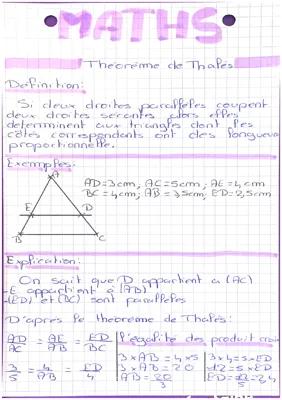 MATHS
Théorème de Thalès
Définition:
Si deux droites parallèles coupent
deux droites sécantes alors elles
déterminent aux triangles dont les
côtés correspondants ont des longueurs
proportionnelle.
Exemples:
A
AD=3cm, AC=5cm, AE=4cm
BC=4cm, AB=3,5cm, ED=2,5cm
E D
B C
Explication:
On sait que D appartient à (AC)
-E appartient à (AB)
-(ED) et (BC) sont parallèles
D'après le théorème de Thalès:
AD/AC = AE/AB = ED/BC
l'égalité des produit croix
3/5 = 4/AB = ED/4
3×AB=4×5
3×AB=20
AB=20/3
3×4=5×ED
12=5×ED